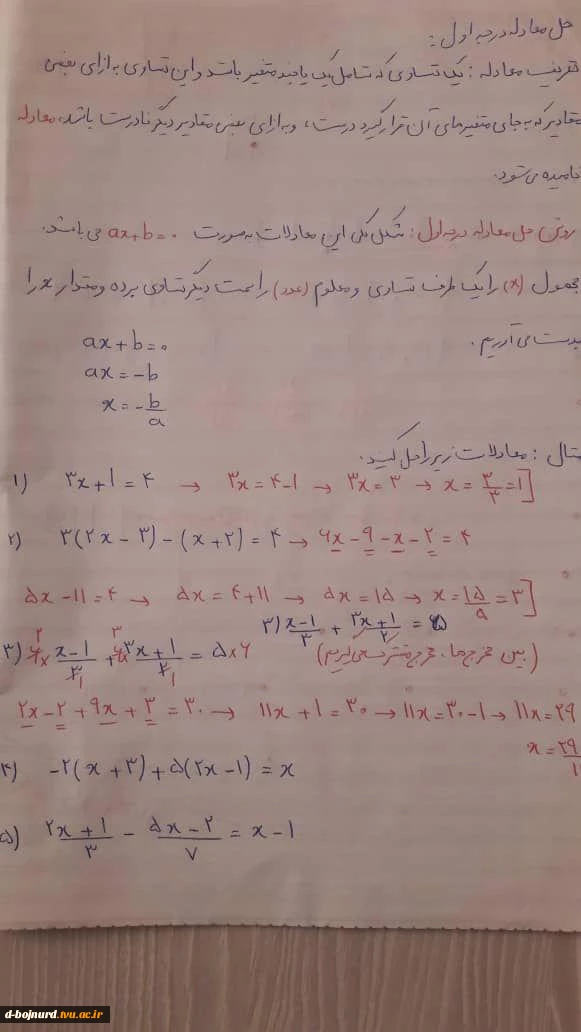 حل معادله درجه اول :
تعریف معادله : یک تساوی که شامل یک یا چند متغیر باشد و این تساوی به ازای بعضی
مقادیر که به جای متغیرهای آن قرار گیرد درست، و به ازای بعضی مقادیر دیگر نادرست باشد، معادله
نامیده می شود.
روش حل معادله درجه اول : شکل کلی این معادلات به صورت ax+b=۰ می باشد.
مجهول (x) را یک طرف تساوی و معلوم (عدد) را سمت دیگر تساوی برده و مقدار x را
بدست می آوریم.
ax+b=۰
ax=-b
x=-b/a
مثال : معادلات زیر را حل کنید.
۱) ۳x+۱=۴ → ۳x=۴-۱ → ۳x=۳ → x=۳/۳=۱]
۲) ۳(۲x-۳)-(x+۲)=۴ → ۶x-۹-x-۲=۴
۵x-۱۱=۴ → ۵x=۴+۱۱ → ۵x=۱۵ → x=۱۵/۵=۳]
۳) x-۱/۳ + ۳x+۱/۲ = ۵
۳) ۶× x-۱/۳ + ۶× ۳x+۱/۲ = ۵×۶ (بین مخرج ها، مخرج مشترک می گیریم)
۲x-۲+۹x+۳=۳۰ → ۱۱x+۱=۳۰ → ۱۱x=۳۰-۱ → ۱۱x=۲۹
x=۲۹/۱
۴) -۲(x+۳)+۵(۲x-۱)=x
۵) ۲x+۱/۳ - ۵x-۲/۷ = x-۱
d-bojnurd.tvu.ac.ir